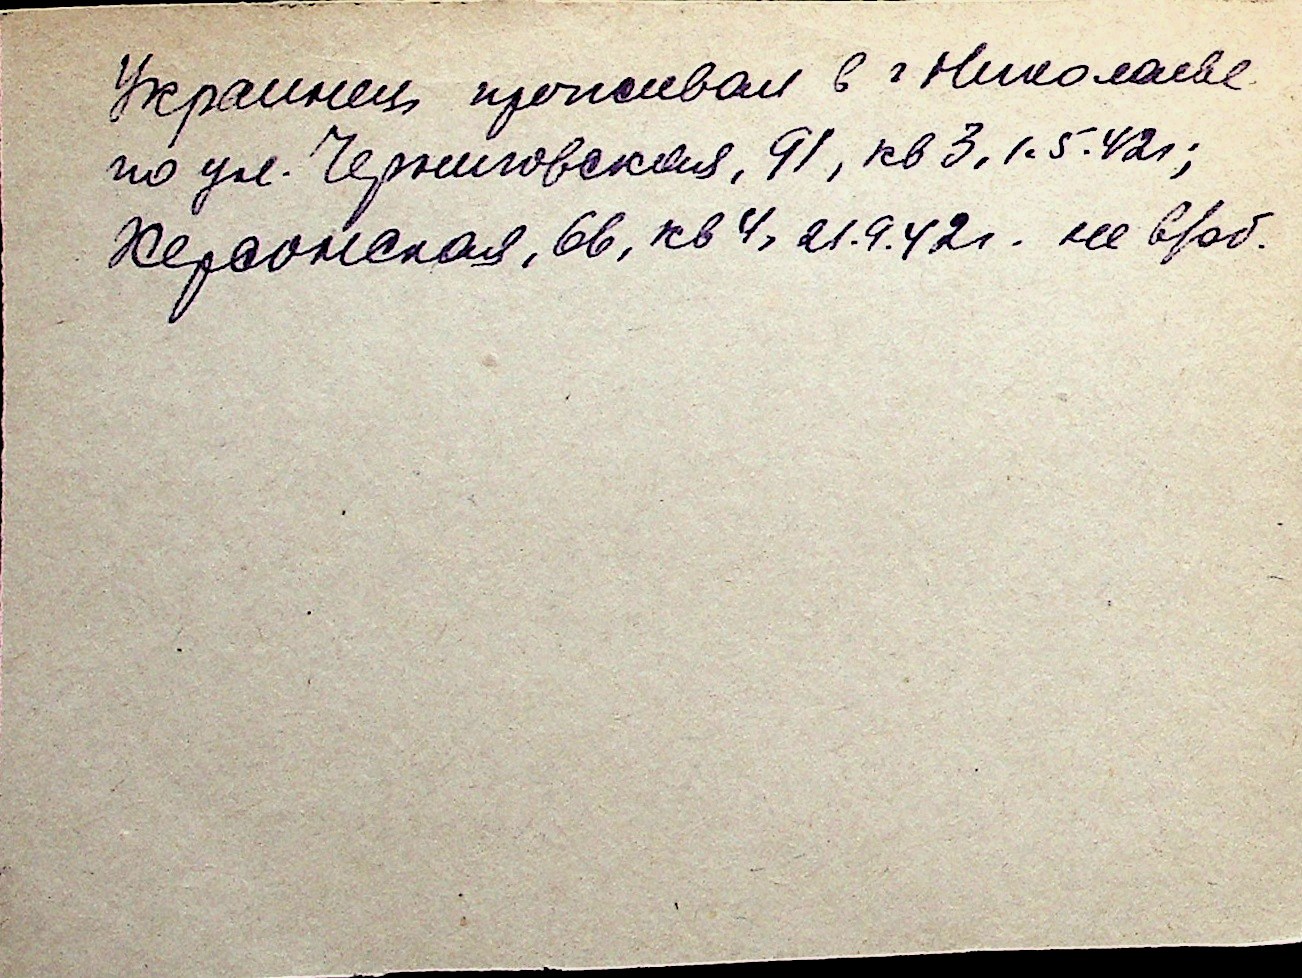 Украинец проживал в г Николаеве
по ул. Черниговская, 91, кв 3, 1.5.42г;
Херсонская, 66, кв 4, 21.9.42г. не